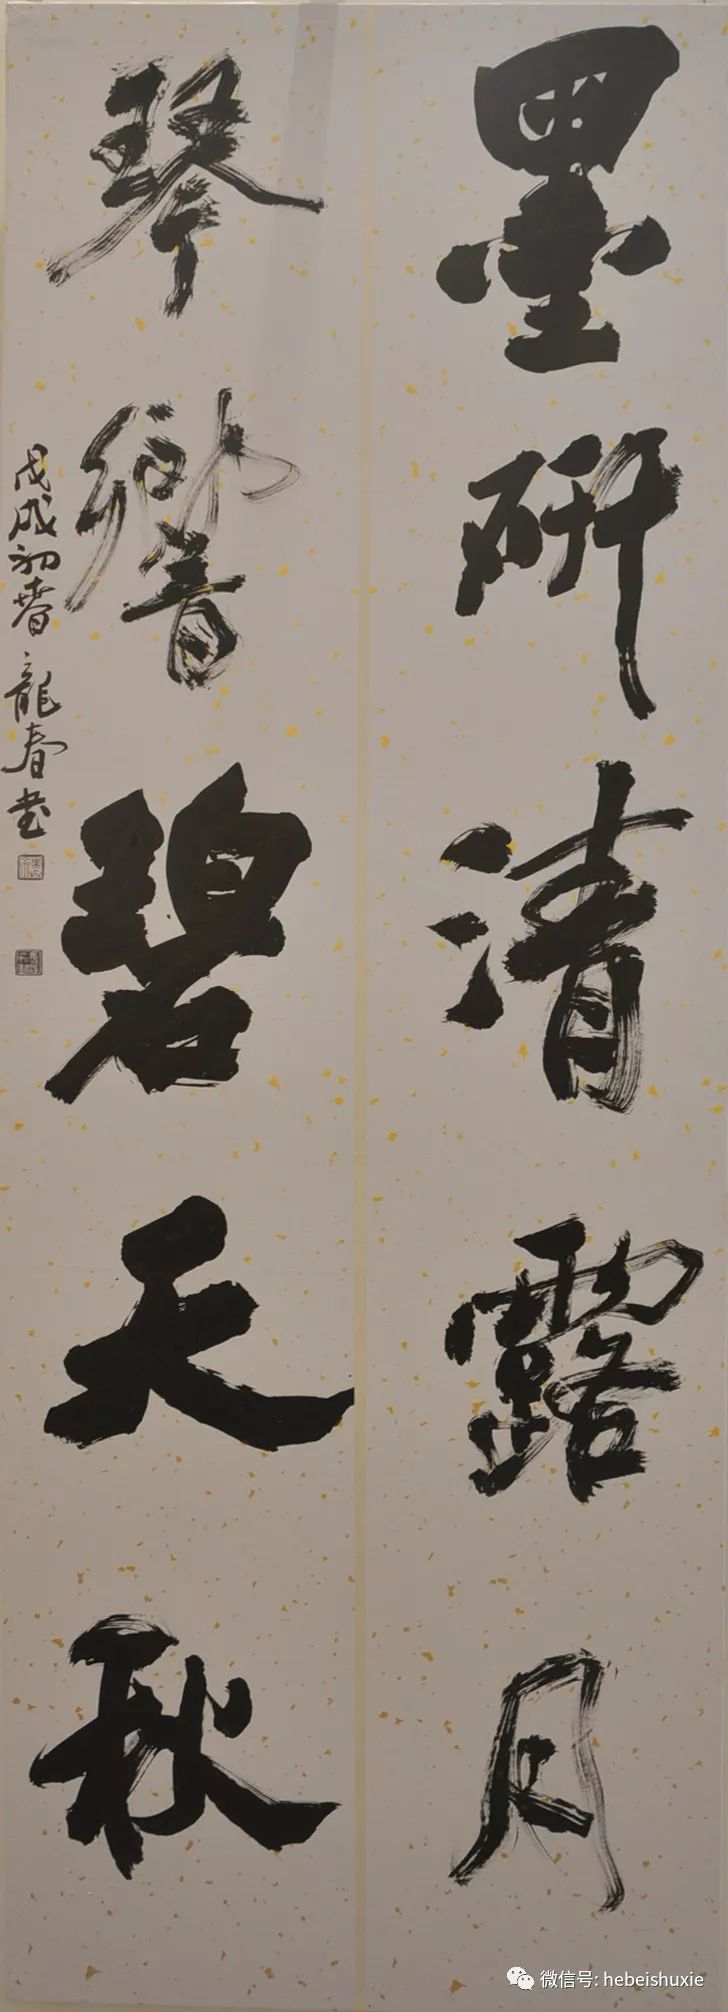 墨研清露月
琴響碧天秋
戊戌初春龍春书
微信号: hebeishuxie